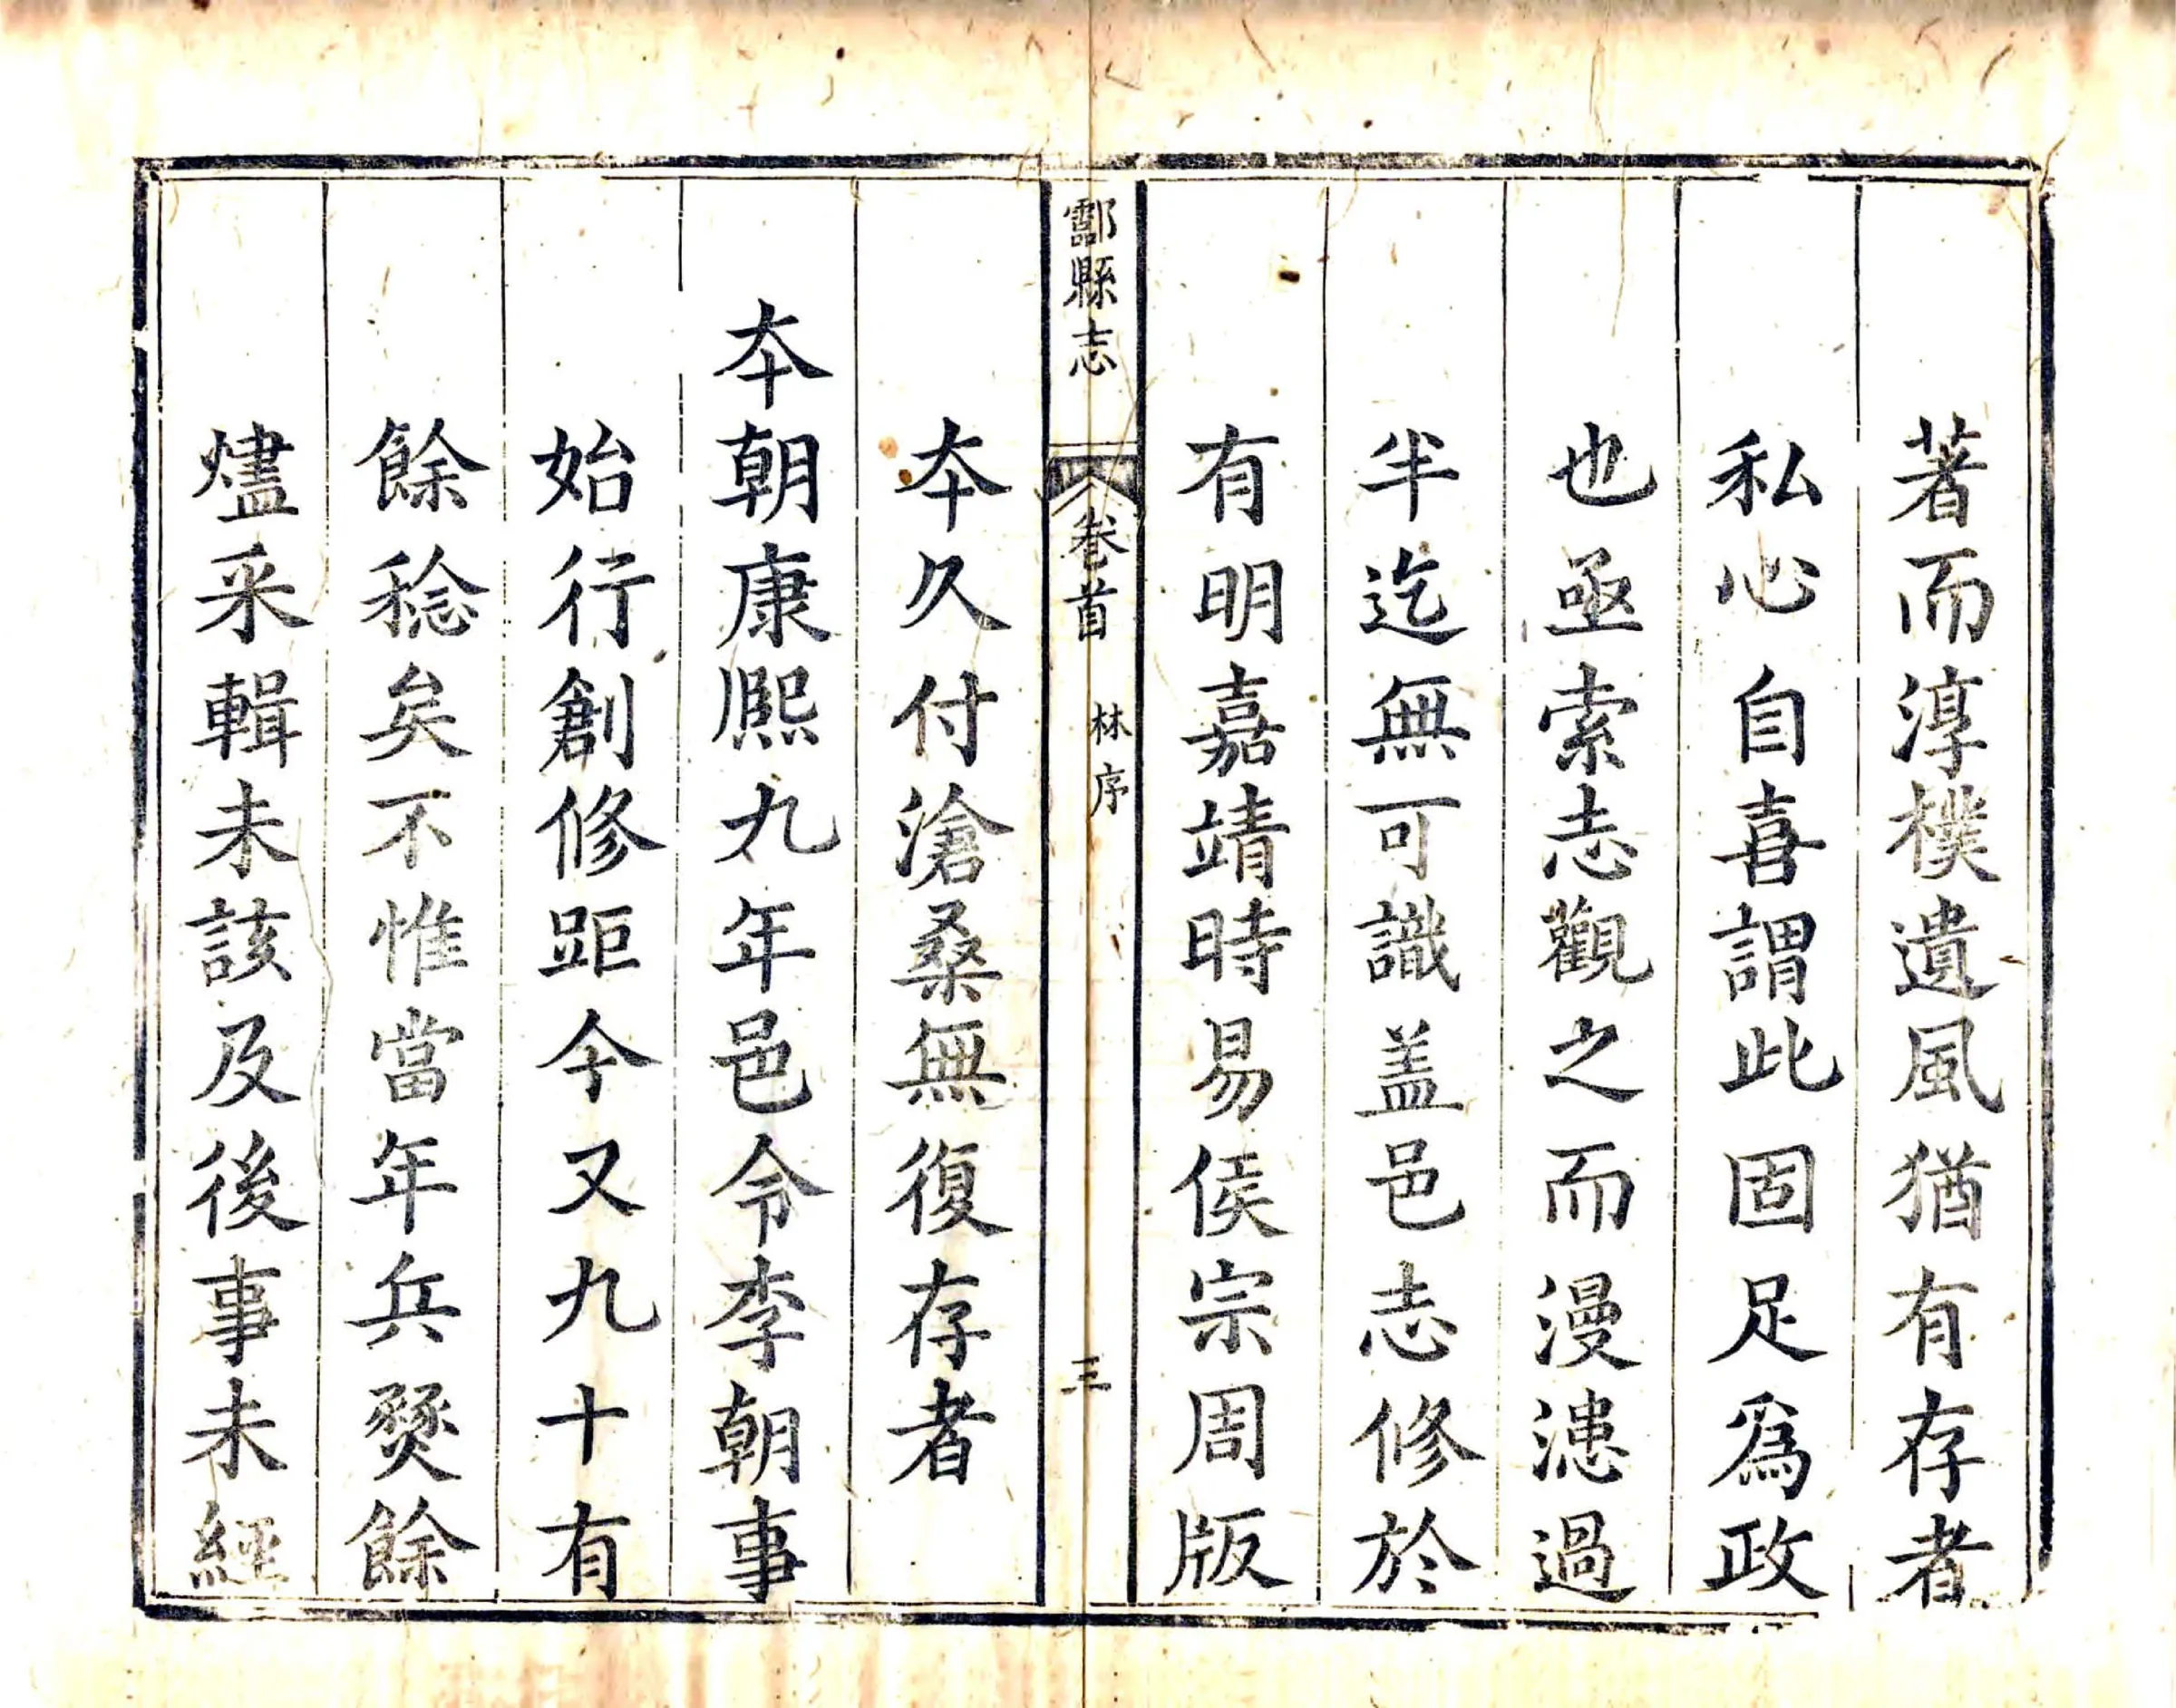 著而淳樸遺風猶有存者
私心自喜謂此固足爲政
也亟索志觀之而漫漶過
半迄無可識盖邑志修於
有明嘉靖時易侯宗周版
酃縣志 卷首 林序 三
本久付滄桑無復存者
本朝康熙九年邑令李朝事
始行創修距今又九十有
餘稔矣不惟當年兵燹餘
燼采輯未該及後事未經